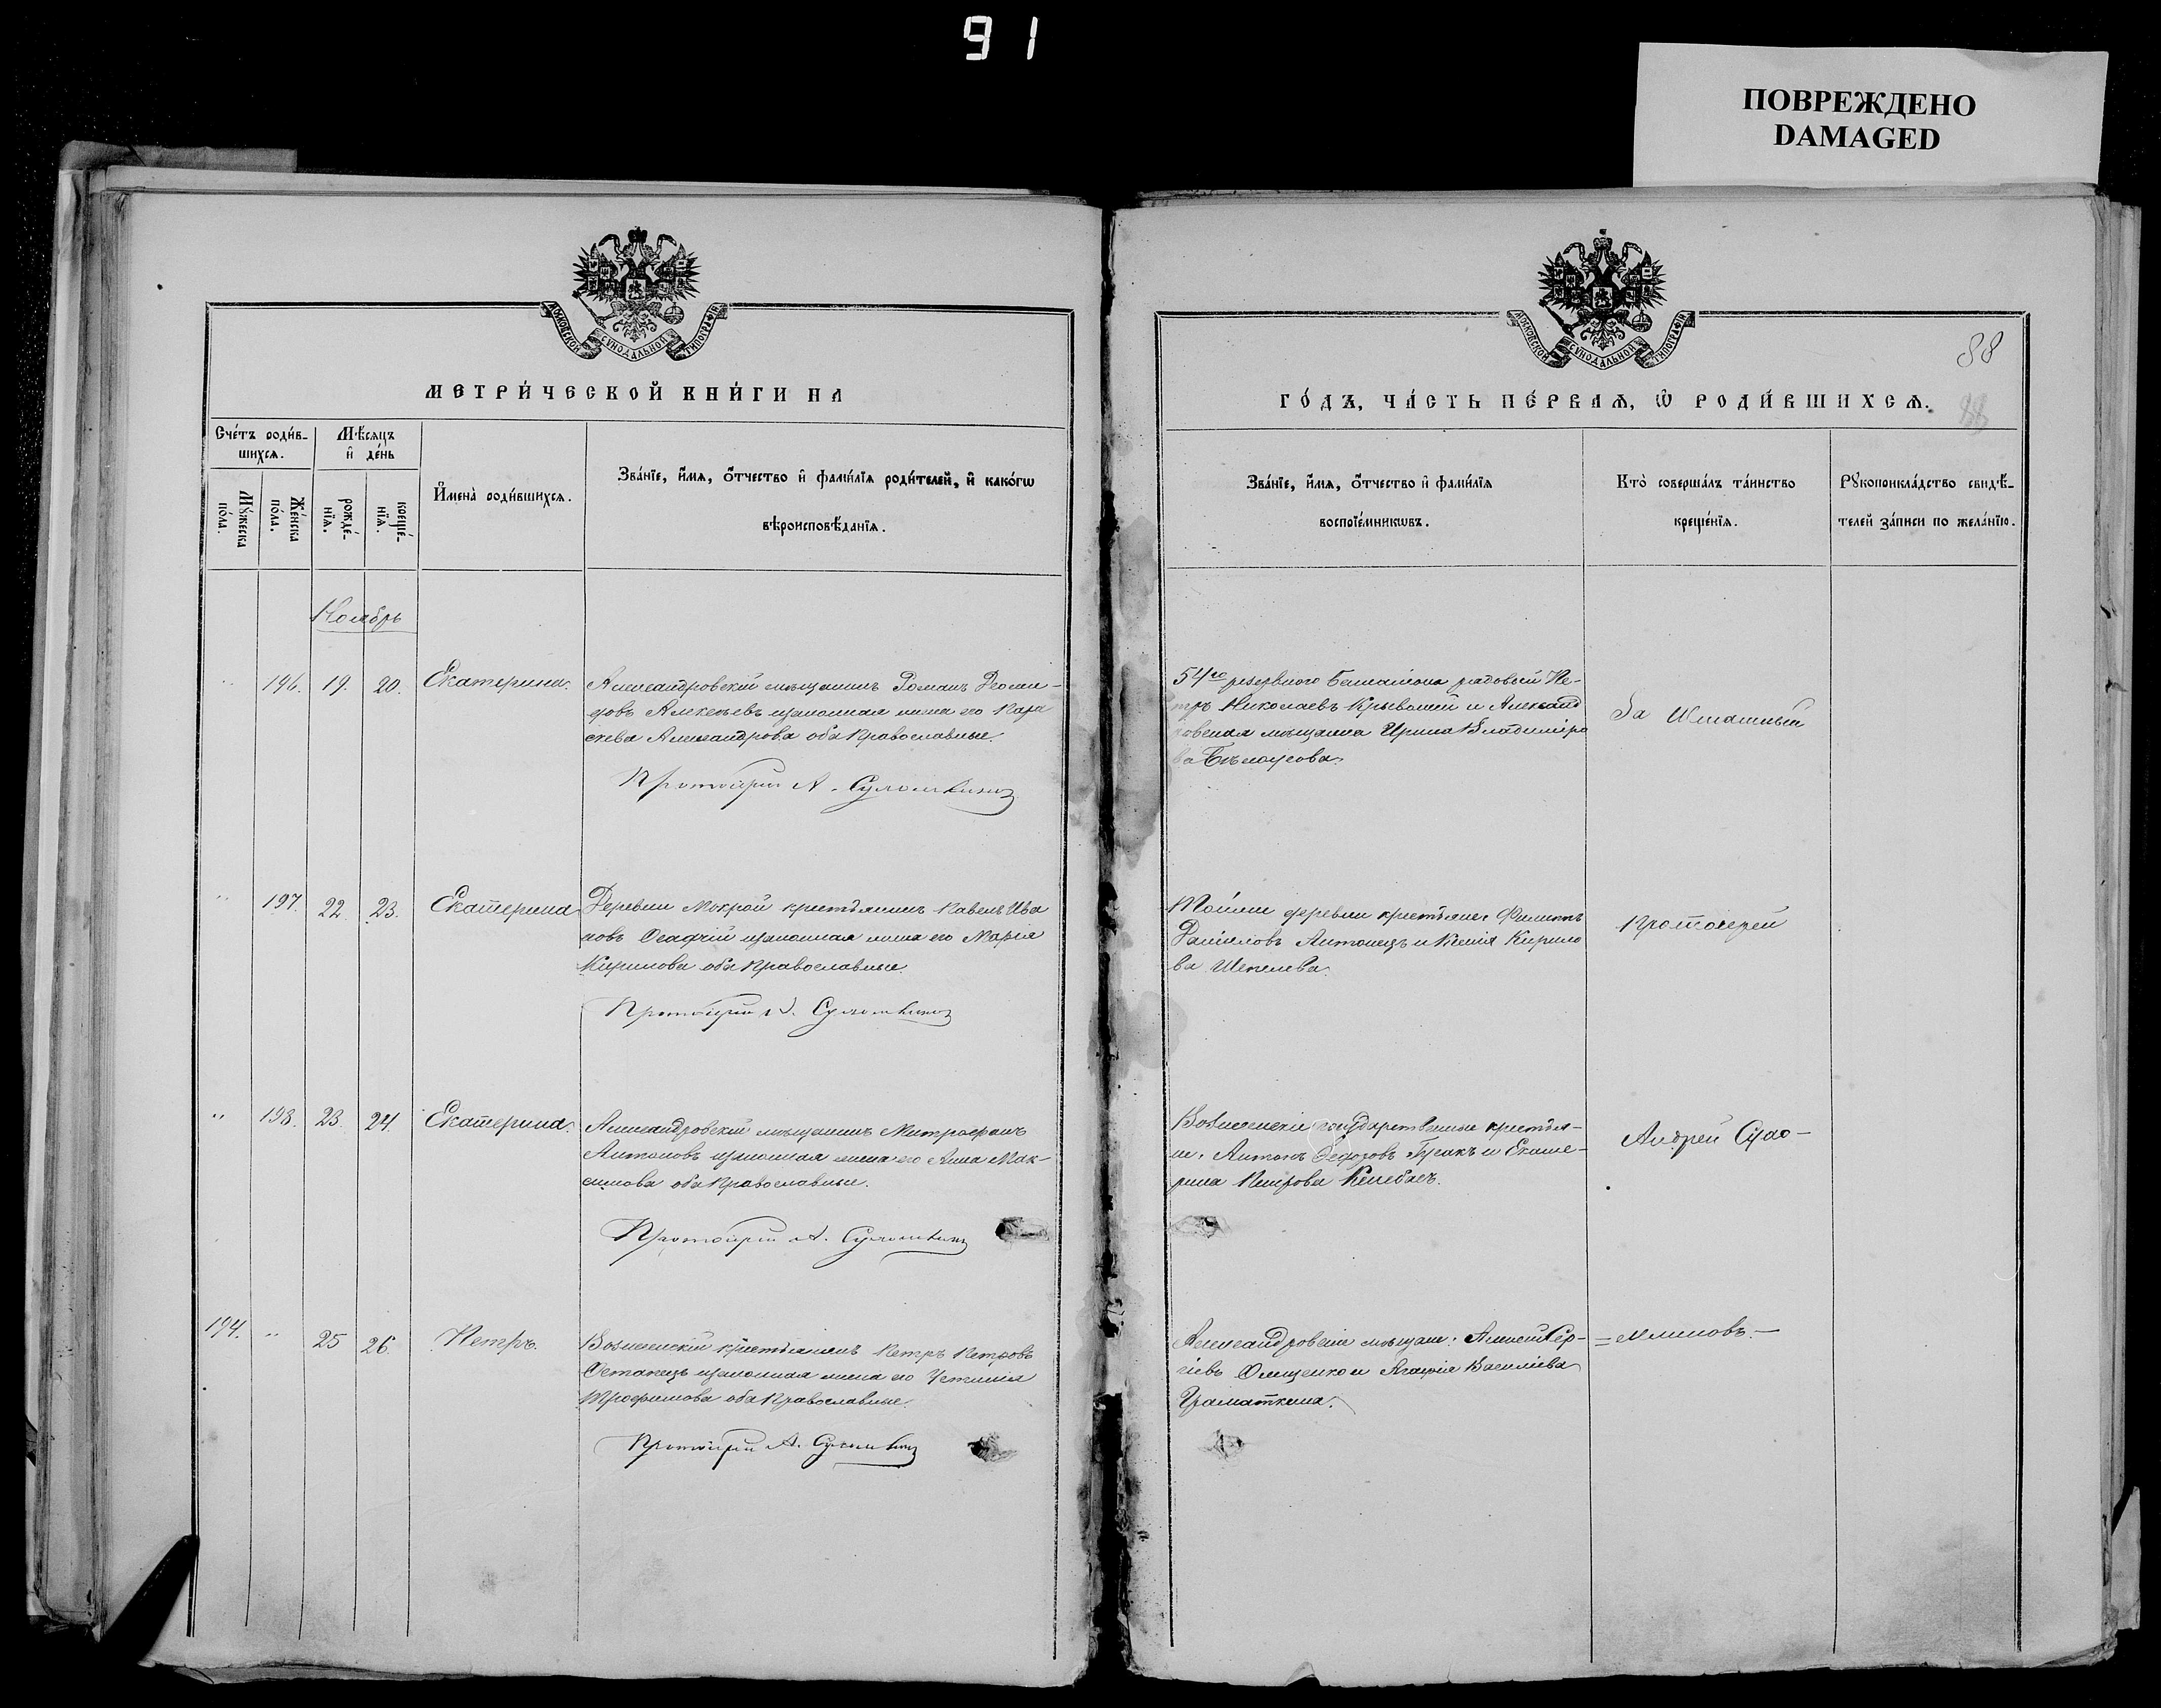 91
ПОВРЕЖДЕНО
DAMAGED
МОСКОВСКОЙ СѴНОДАЛЬНОЙ ТИПОГРАФІИ
МЕТРИ́ЧЕСКОЙ КНИ́ГИ НА
Сче́тъ роди́в-
шихсѧ.
Мѣ́сѧцъ
и҆ де́нь
Мꙋ́жеска
по́ла.
Же́нска
по́ла.
рожде́-
нїѧ.
креще́-
нїѧ.
И҆мена̀ роди́вшихсѧ.
Зва́нїе, и҆́мѧ, ѻ҆́тчество и҆ фами́лїѧ роди́телей, и҆ како́гѡ
вѣроисповѣ́данїѧ.
Ноябрь
196. 19. 20. Екатерина.
Александровскій мѣщанинъ Романъ
законная жена его Пара
скева Александрова оба Православные.
Протоіерей А.
" 197. 22. 23. Екатерина
Деревни Мокрой крестьянинъ Павелъ Ива
новъ Осадчій законная жена его Марія
Кирилова оба Православные.
Протоіерей А.
" 198. 23. 24. Екатерина.
Александровскій мѣщанинъ Митрофанъ
Антоновъ законная жена его Анна Мак-
симова оба Православные.
Протоіерей А.
194. " 25 26. Петръ.
Вознесенскій крестьянинъ Петръ Петровъ
Остапецъ законная жена его Устинія
Трофимова оба Православные.
Протоіерей А.
МОСКОВСКОЙ СѴНОДАЛЬНОЙ ТИПОГРАФІИ
88
ГО́ДЪ, ЧА́СТЬ ПЕ́РВАѦ, Ѡ҆ РОДИ́ВШИХСѦ.
88
Зва́нїе, и҆́мѧ, ѻ҆́тчество и҆ фами́лїѧ
воспрїе́мникѡвъ.
Кто̀ соверша́лъ та́инство
креще́нїѧ.
Рꙋкоприкла́дство свидѣ́-
телей за́писи по жела́нїю.
54го резервного баталіона рядовый Пе-
тръ Николаевъ и Александ
ровская мѣщанка Ирина Владимiро
ва Бѣлоусова.
За Штатный
Тойже деревни крестьяне: Филиппъ
Даніиловъ Антонецъ и Ксенія Кирило
ва Шепелева.
Протоіерей
Вознесенскіе государственные крестья-
не, Антонъ Федоровъ и Екате-
рина Петрова
Андрей Суло-
Александровскіе мѣщане: Алексей Сер-
гіевъ Онищенко и Агафія Василіева
Граматкина.
=млиновъ.—